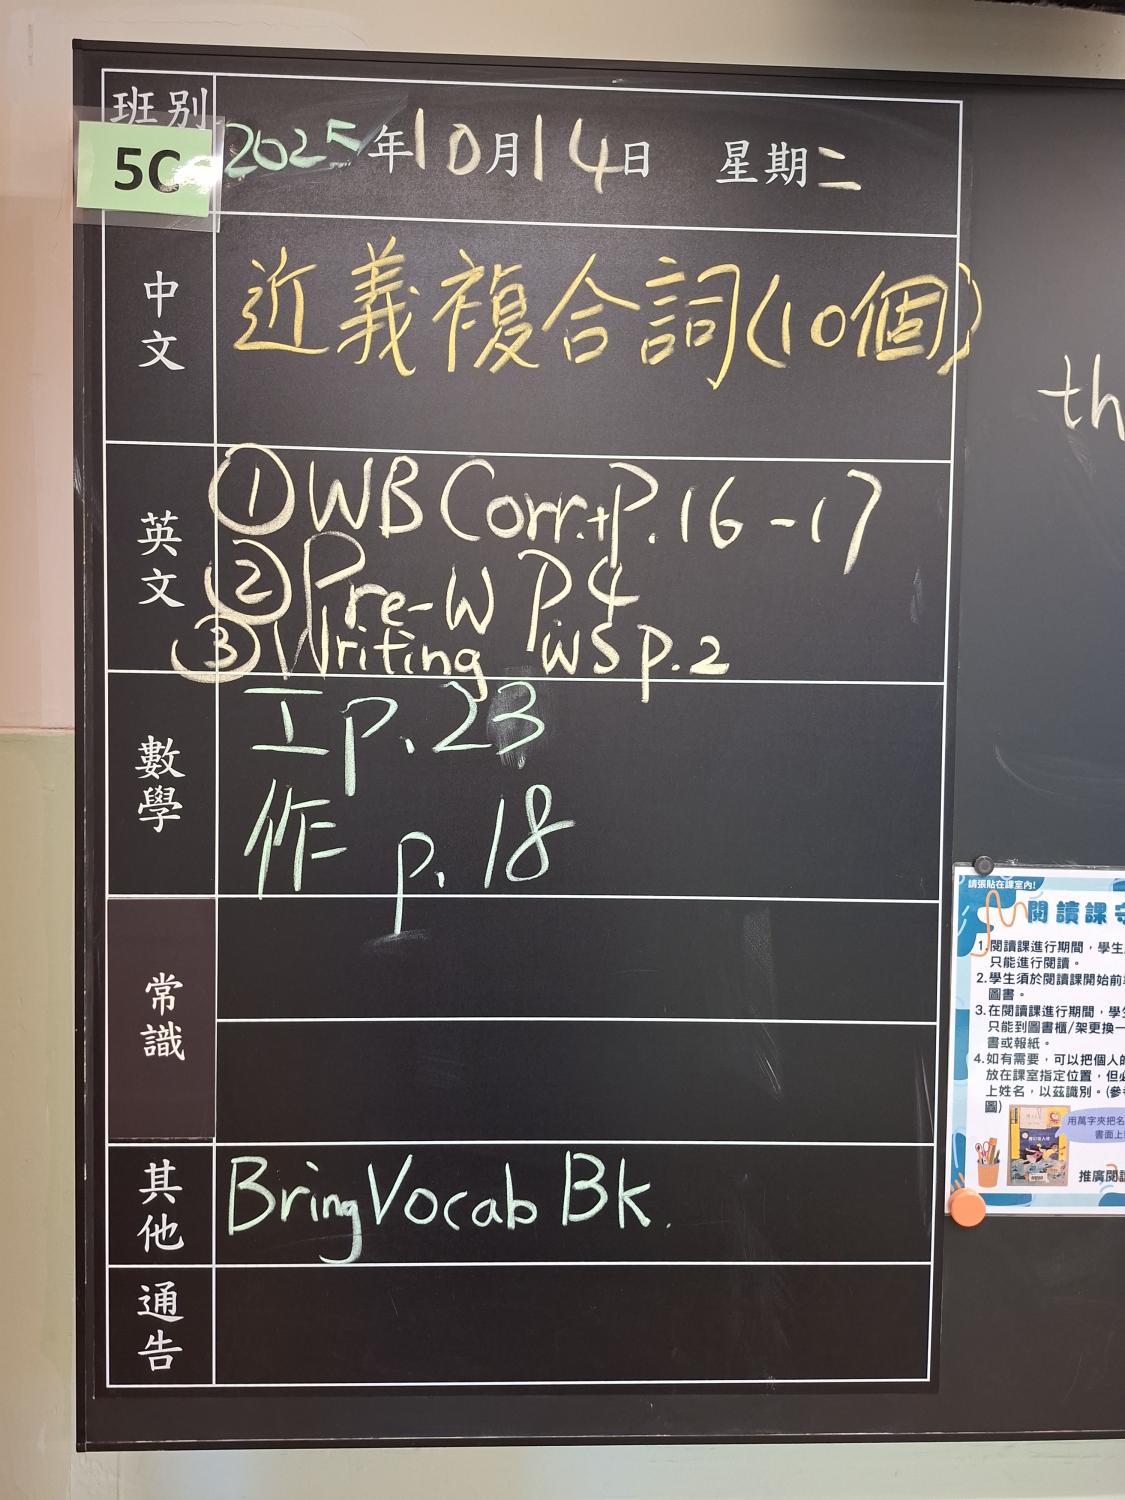 班別
5C
2025年10月14日 星期二
中文
近義複合詞(10個)
英文
①WB Corr.+P.16-17
②Pre-W P4
③Writing WS p.2
數學
工p.23
作 p.18
常識
其他
Bring Vocab Bk.
通告
th
請張貼在課室內!
閱讀課守
1.閱讀課進行期間，學生
只能進行閱讀。
2.學生須於閱讀課開始前
圖書。
3.在閱讀課進行期間，學生
只能到圖書櫃/架更換一
書或報紙。
4.如有需要，可以把個人的
放在課室指定位置，但必
上姓名，以茲識別。(參
圖)
用萬字夾把名
書面上
推廣閱讀